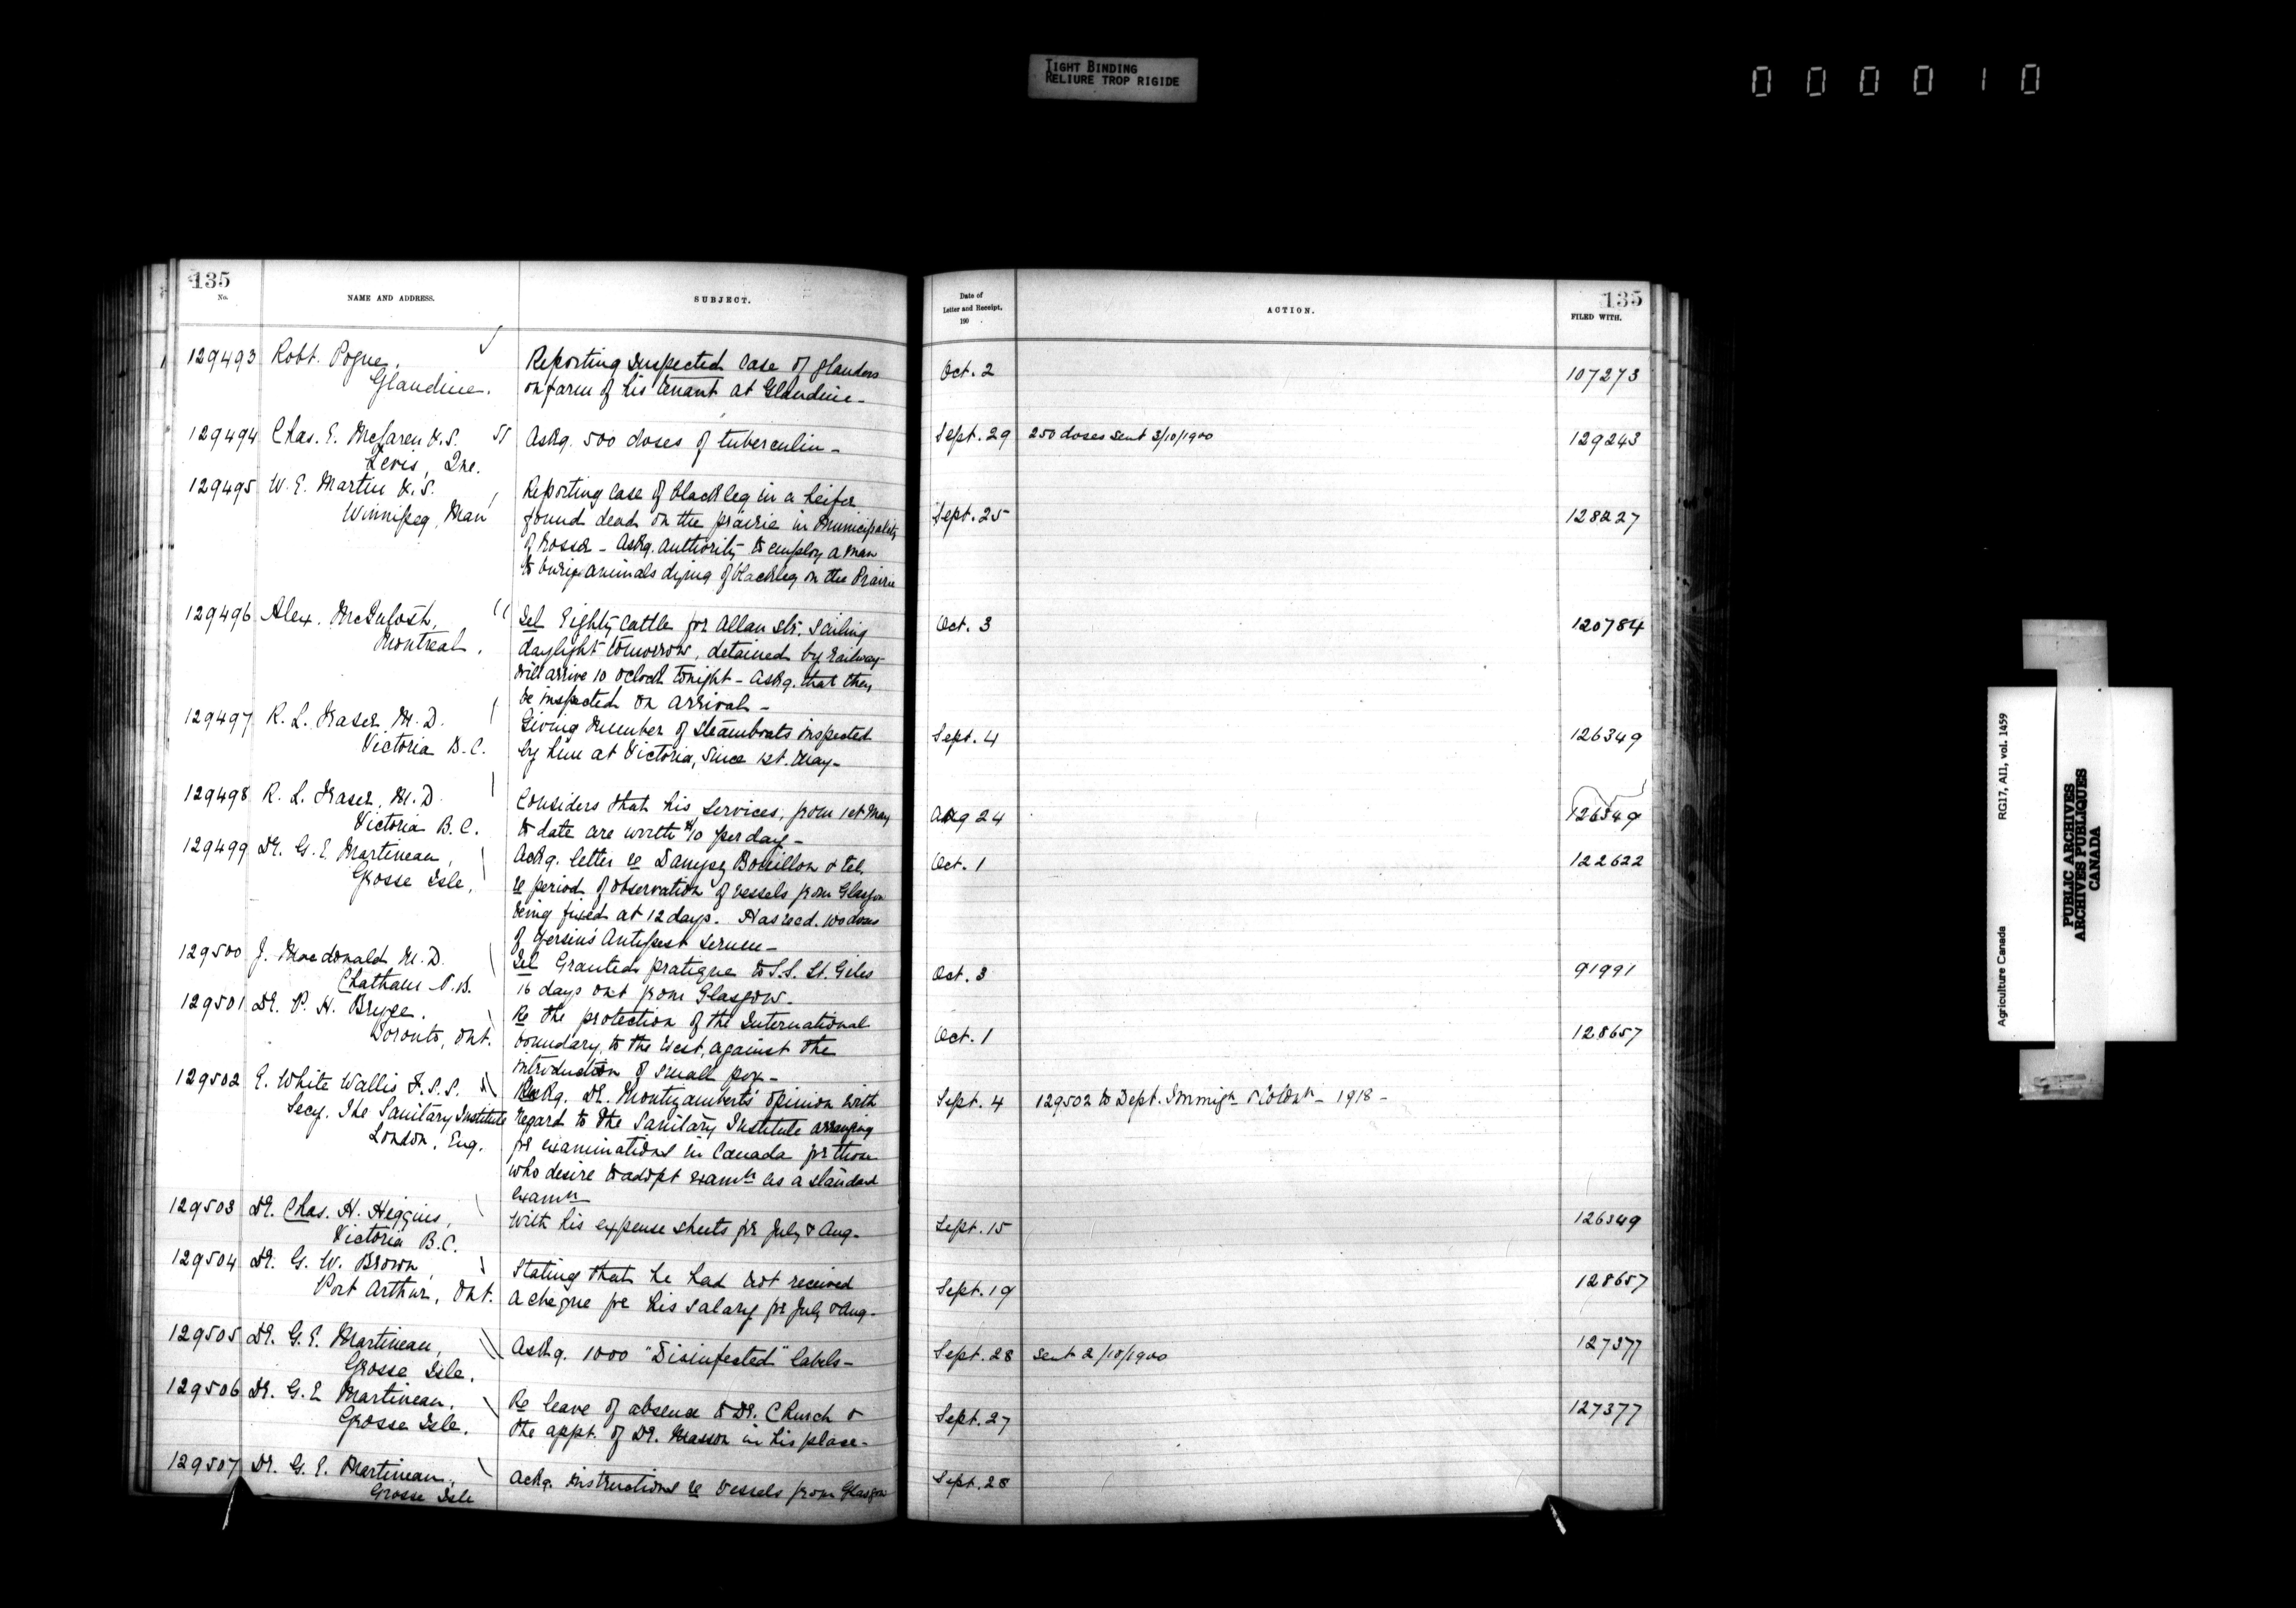 TIGHT BINDING
RELIURE TROP RIGIDE
000010
135
No.
NAME AND ADDRESS.
SUBJECT.
Date of
Letter and Receipt,
190 .
ACTION.
135
FILED WITH.
129493 Robt. Pogue, Reporting suspected case of glanders Oct. 2 107273
Glandine. on farm of his tenant at Glandine-
129494 Chas. E. McLaren V.S. Askg. 500 doses of tuberculin- Sept. 29 250 doses sent 3/10/1900 129243
Levis, Que.
129495 W. E. Martin V.S. Reporting case of blackleg in a heifer
Winnipeg, Man found dead on the prairie in Municipality Sept. 25 128227
of Rosser - Askg. authority to employ a man
to bury animals dying of blackleg on the Prairie
129496 Alex. McIntosh, Tel Eighty cattle for Allan Str. sailing Oct. 3 120784
Montreal. daylight tomorrow, detained by railway
will arrive 10 oclock tonight - Askg. that they
be inspected on arrival-
129497 R. L. Fraser M.D. Giving number of steamboats inspected Sept. 4 126349
Victoria B.C. by him at Victoria, since 1st. May-
129498 R. L. Fraser, M.D. Considers that his services, from 1st May Aug 24 126349
Victoria B.C. to date are worth $10 per day-
129499 Dr. G. E. Martineau, Ackg. letter re Bouillon & tel. Oct. 1 122622
Grosse Isle, re period of observation of vessels from Glasgow
being fixed at 12 days. Has recd. 100 doses
of Yersin's Antipest serum-
129500 J. Macdonald M.D. Tel Granted pratique to S.S. St. Giles Oct. 3 91991
Chatham N.B. 16 days out from Glasgow.
129501 Dr. P. H. Bryce. Re the protection of the International Oct. 1 128657
Toronto, Ont. boundary, to the West, against the
introduction of small pox-
129502 E. White Wallis F.S.S. Askg. Dr. Montizambert's opinion with Sept. 4 129502 to Dept. Immign & Colonn - 1918 -
Secy. The Sanitary Institute regard to the Sanitary Institute arranging
London, Eng. for examinations in Canada for those
who desire to adopt examn as a standard
examn
129503 Dr. Chas. H. Higgins, With his expense sheets for July & Aug- Sept. 15 126349
Victoria B.C.
129504 Dr. G. W. Brown Stating that he had not received Sept. 19 128657
Port Arthur, Ont. a cheque for his salary for July & Aug-
129505 Dr. G. E. Martineau, Askg. 1000 "Disinfected" labels- Sept. 28 Sent 2/10/1900 127377
Grosse Isle.
129506 Dr. G. E. Martineau. Re leave of absence to Dr. Church & Sept. 27 127377
Grosse Isle. the appt. of Dr. Masson in his place-
129507 Dr. G. E. Martineau, Ackg. instructions re vessels from Glasgow Sept. 28
Grosse Isle
Agriculture Canada RG17, AII, vol. 1459
PUBLIC ARCHIVES
ARCHIVES PUBLIQUES
CANADA